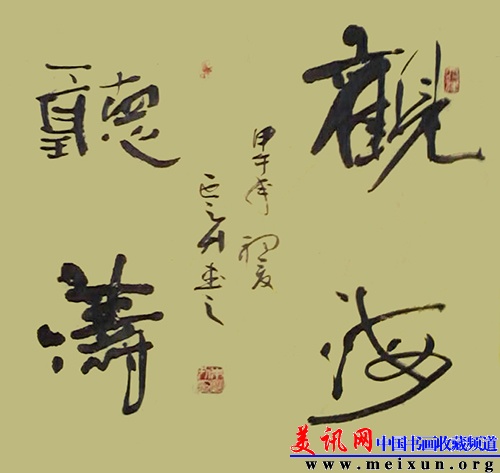 觀海
聽濤
甲午年初夏
書之
美讯网中国书画收藏频道
www.meixun.org